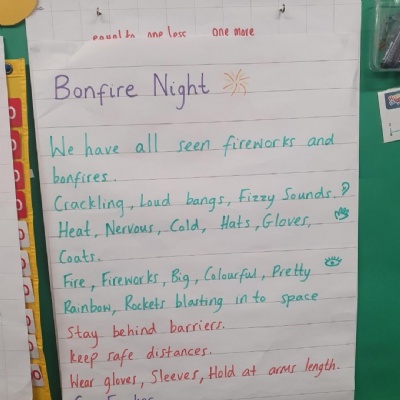 equal to one less one more
Bonfire Night
We have all seen fireworks and
bonfires.
Crackling, Loud bangs, Fizzy Sounds.
Heat, Nervous, Cold, Hats, Gloves,
Coats.
Fire, Fireworks, Big, Colourful, Pretty
Rainbow, Rockets blasting in to space
Stay behind barriers.
Keep safe distances.
Wear gloves, Sleeves, Hold at arms length.